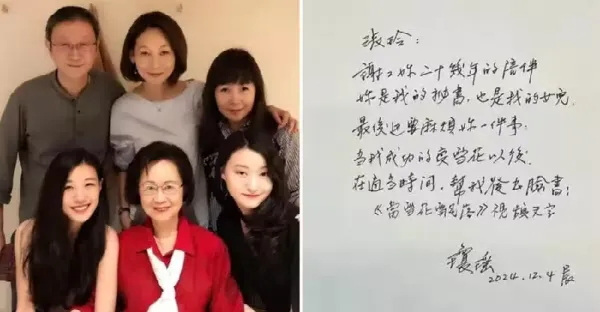 淑玲：
謝謝妳二十幾年的陪伴
妳是我的秘書，也是我的女兒
最後還要麻煩妳一件事：
當我成功的變雪花以後，
在適當時間，幫我發去臉書：
《當雪花飄落》視頻及文字
瓊瑤
2024.12.4 晨